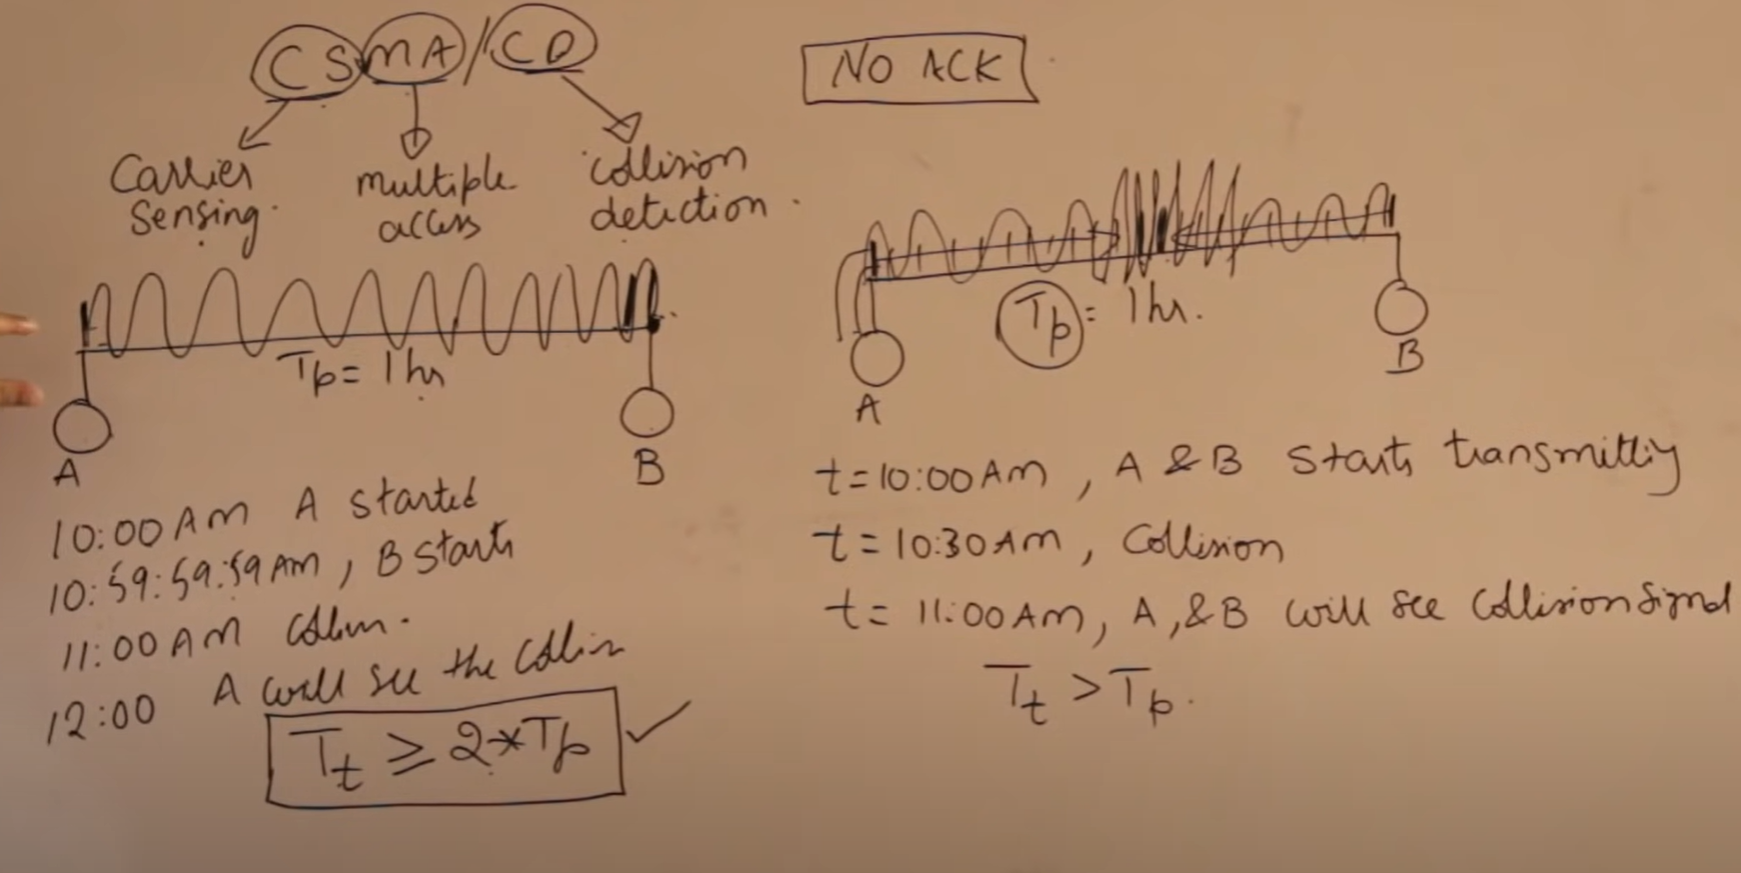 CSMA/CD
NO ACK
Carrier
Sensing.
multiple
access
collision
detection.
Tp= 1hr
A
B
10:00AM A started
10:59:59:59AM, B Starts
11:00AM
12:00 A will see the
Tt ≥ 2*Tp
Tp= 1hr.
A
B
t=10:00AM, A & B Starts transmitting
t=10:30AM, Collision
t= 11:00AM, A,&B will see Collision Signal
Tt > Tp.